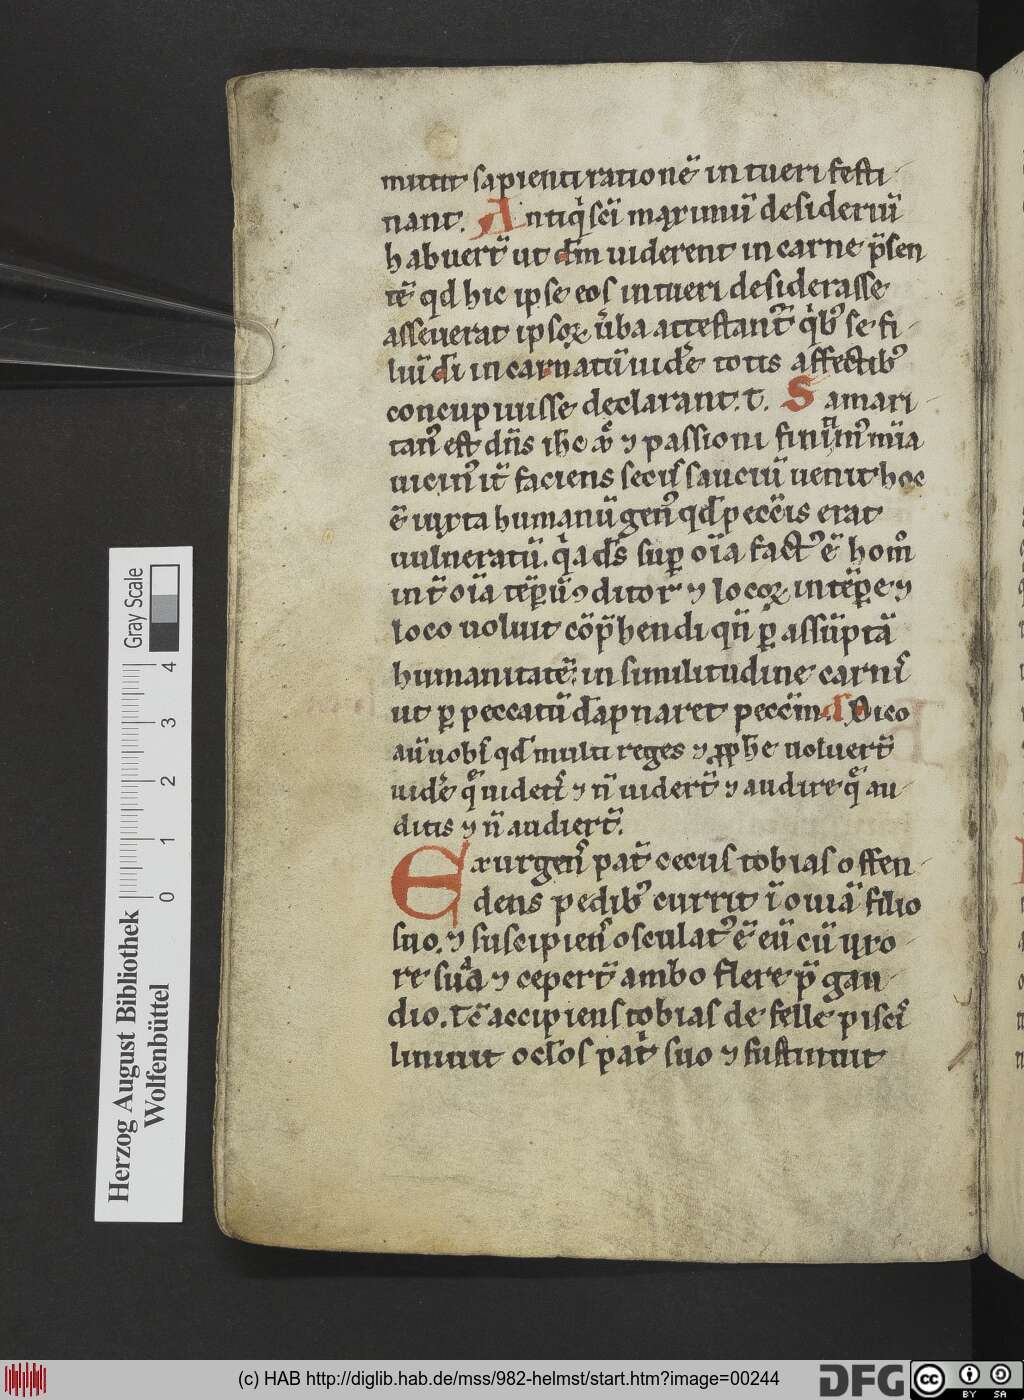 mittit sapienti rationē intueri festi
nant. Antiq̇ sc̄i maximū desideriū
habuer̄t ut dm̄ uiderent in carne p̄sen
tē qd hic ipse eos intueri desiderasse
asseuerat ipsoꝝ ūba attestant᷒ q̇bꝰ se fi
liū dī incarnatū uidē totis affectibꝰ
concupiuisse declarant. t. Samari
tanꝰ est dn̄s ih̄c
uicinꝰ it̄ faciens secus sauciū uenit hoc
ē iuxta humanū genꝰ qd peccīs erat
uulneratū. q̇a ds̄ suꝑ oīa factꝰ ē homo
int̄ oīa
loco uoluit cōp̄hendi qn̄ ꝑ assūptā
humanitatē in similitudine carnis
ut ꝑ peccatū dāpnaret peccm̄. Dico
aū uobis qd multi reges ⁊ ꝓphe uoluer̄t
uidē q̄ uidetis ⁊ n̄ uider̄t ⁊ audire q̄ au
ditis ⁊ n̄ audier̄t.
Exurgens pat̄ cecus tobias offen
dens pedibꝰ currit ī ouiā filio
suo. ⁊ suscipiens osculatꝰ ē eū cū uxo
re sua ⁊ ceper̄t ambo flere p̄ gau
dio. Tc̄ accipiens tobias de felle piscis
liniuit oclos pat̄ suo ⁊ sustinuit
Herzog August Bibliothek
Wolfenbüttel
Gray Scale
0 1 2 3 4
(c) HAB http://diglib.hab.de/mss/982-helmst/start.htm?image=00244
DFG
cc BY SA